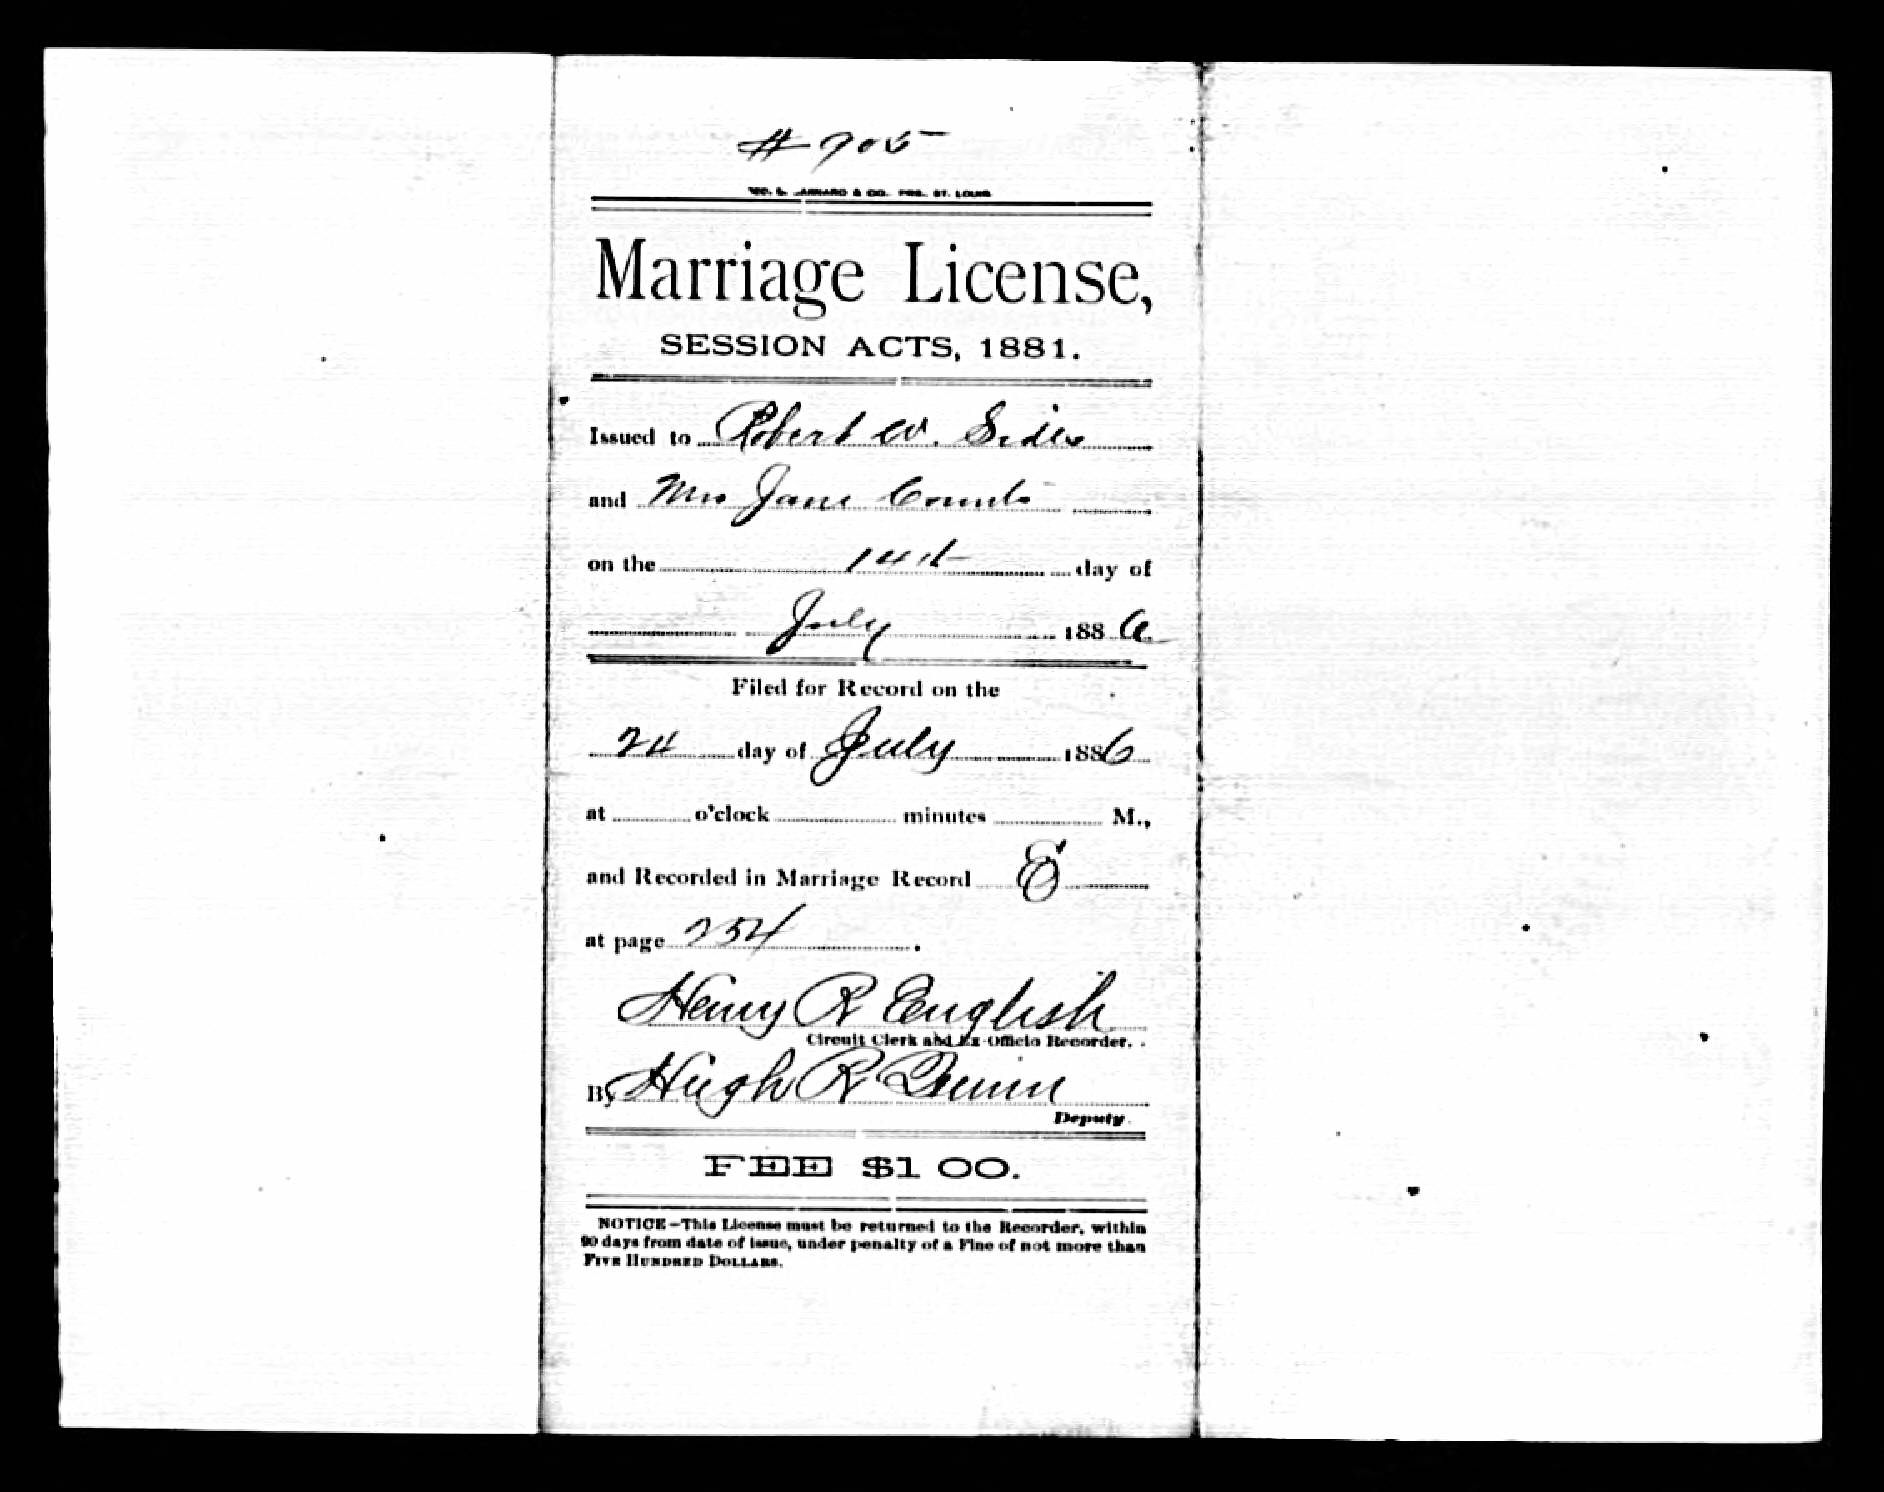 # 705
GEO. D. BARNARD & CO. PRS. ST. LOUIS
Marriage License,
SESSION ACTS, 1881.
Issued to Robert W. Sides
and Mrs Jane Counts
on the 14th day of
July 1886
Filed for Record on the
24 day of July 1886
at o'clock minutes M.,
and Recorded in Marriage Record E
at page 254.
Henry R English
Circuit Clerk and Ex-Officio Recorder.
By Hugh R Quinn
Deputy.
FEE $1 00.
NOTICE—This License must be returned to the Recorder, within
90 days from date of issue, under penalty of a Fine of not more than
FIVE HUNDRED DOLLARS.